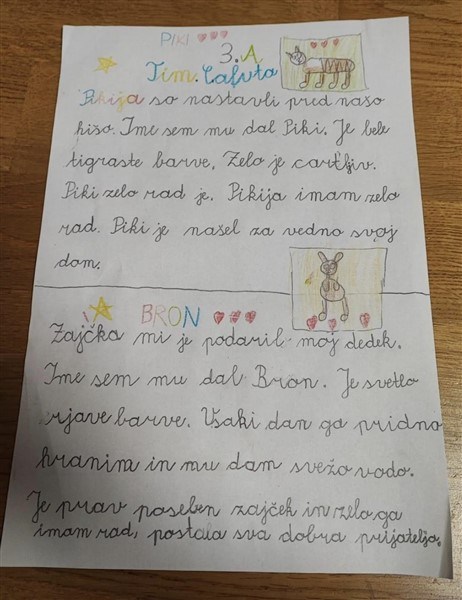 PIKI
3. A
Tim. Cafuta
Pikija so nastavli pred našo
hišo. Ime sem mu dal Piki. Je bele
tigraste barve. Zelo je cartljiv.
Piki zelo rad je. Pikija imam zelo
rad. Piki je našel za vedno svoj
dom.
BRON
Zajčka mi je podaril moj dedek.
Ime sem mu dal Bron. Je svetlo
rjave barve. Vsaki dan ga pridno
hranim in mu dam svežo vodo.
Je prav poseben zajček in zelo ga
imam rad, postala sva dobra prijatelja.